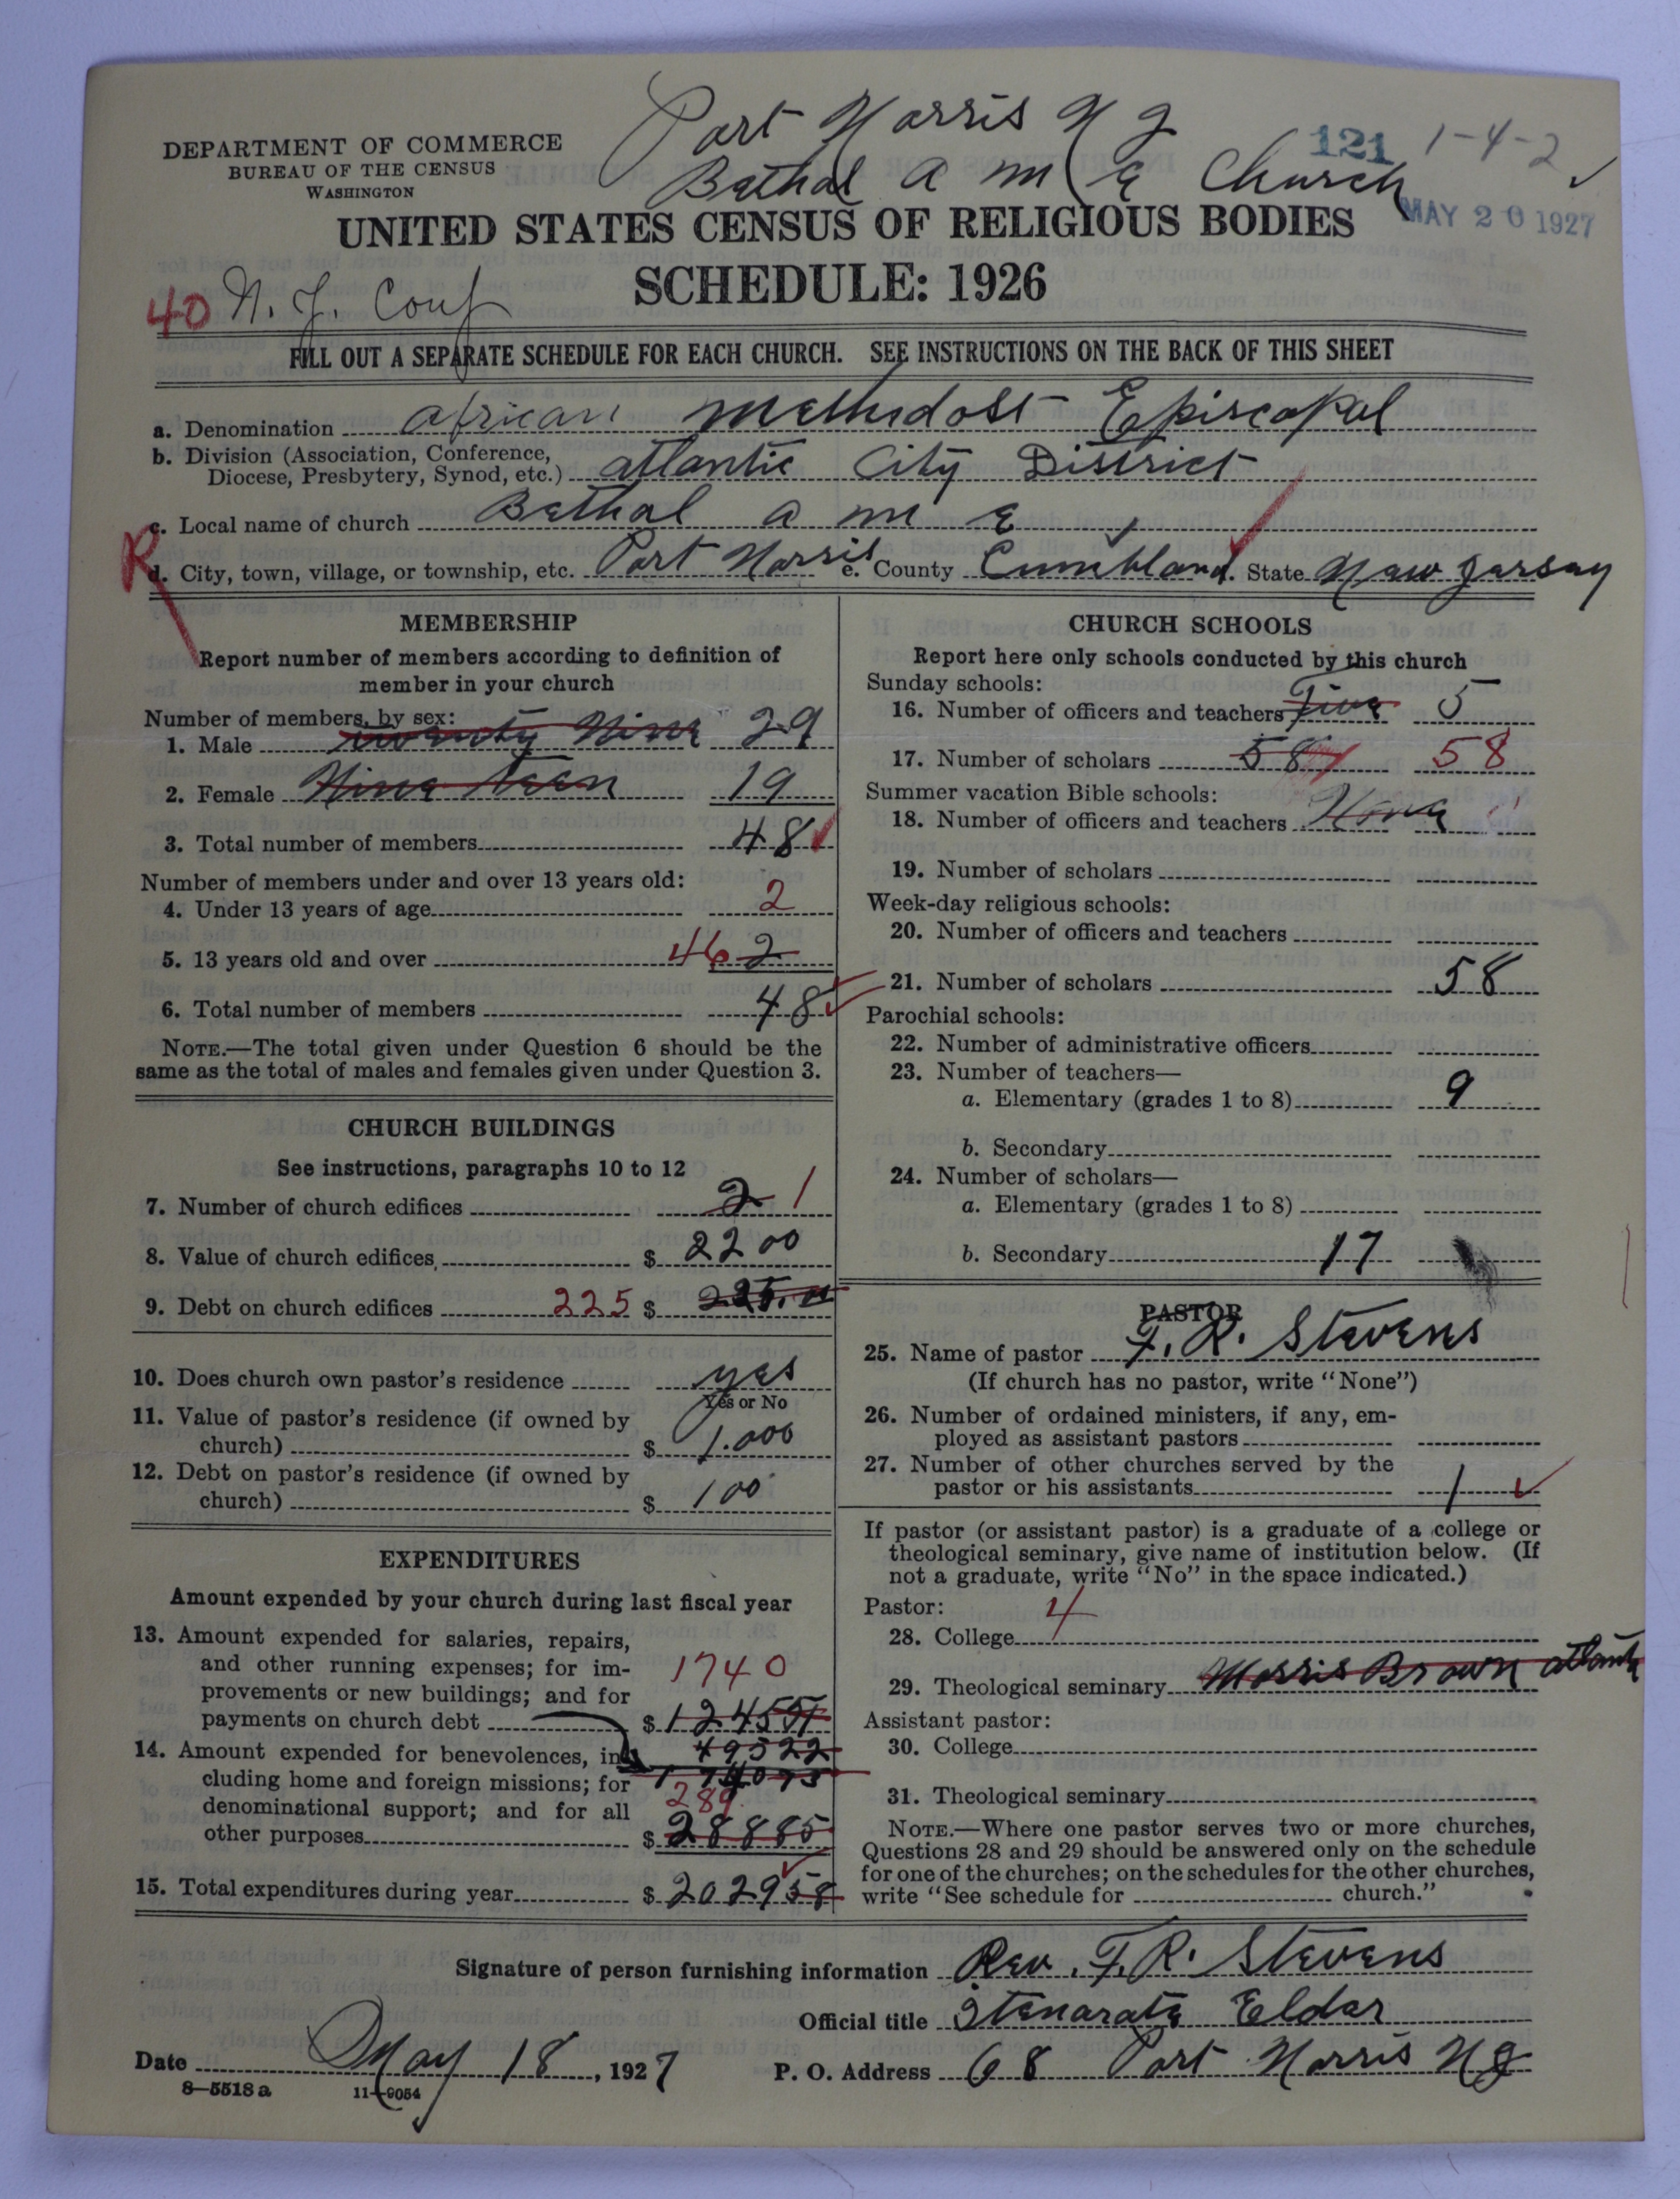 Port Norris N J
121 1-4-2
DEPARTMENT OF COMMERCE
BUREAU OF THE CENSUS
WASHINGTON
Bethal a m E Church
MAY 20 1927
UNITED STATES CENSUS OF RELIGIOUS BODIES
SCHEDULE: 1926
40 N. J. Conf
FILL OUT A SEPARATE SCHEDULE FOR EACH CHURCH. SEE INSTRUCTIONS ON THE BACK OF THIS SHEET
a. Denomination african Methidost Episcopal
b. Division (Association, Conference,
Diocese, Presbytery, Synod, etc.) atlantic City District
c. Local name of church Bethal a m E
R
d. City, town, village, or township, etc. Port Norris e. County Cumbland. State New Jersey
MEMBERSHIP
Report number of members according to definition of
member in your church
Number of members, by sex:
1. Male twenty Nine 29
2. Female Nine teen 19
3. Total number of members 48
Number of members under and over 13 years old:
4. Under 13 years of age 2
5. 13 years old and over 46 2
6. Total number of members 48
NOTE.—The total given under Question 6 should be the
same as the total of males and females given under Question 3.
CHURCH BUILDINGS
See instructions, paragraphs 10 to 12
7. Number of church edifices 2 1
8. Value of church edifices $ 2200
9. Debt on church edifices 225 $ 225.00
10. Does church own pastor's residence yes
Yes or No
11. Value of pastor's residence (if owned by
church) $ 1.000
12. Debt on pastor's residence (if owned by
church) $ 100
EXPENDITURES
Amount expended by your church during last fiscal year
13. Amount expended for salaries, repairs,
and other running expenses; for im-
provements or new buildings; and for
payments on church debt $ 1740
124551
49522
174073
14. Amount expended for benevolences, in-
cluding home and foreign missions; for
denominational support; and for all
other purposes $ 289
28885
15. Total expenditures during year $ 202958
CHURCH SCHOOLS
Report here only schools conducted by this church
Sunday schools:
16. Number of officers and teachers Five 5
17. Number of scholars 58 58
Summer vacation Bible schools:
18. Number of officers and teachers None
19. Number of scholars
Week-day religious schools:
20. Number of officers and teachers
21. Number of scholars 58
Parochial schools:
22. Number of administrative officers
23. Number of teachers—
a. Elementary (grades 1 to 8) 9
b. Secondary
24. Number of scholars—
a. Elementary (grades 1 to 8)
b. Secondary 17
PASTOR
25. Name of pastor F. R. Stevens
(If church has no pastor, write "None")
26. Number of ordained ministers, if any, em-
ployed as assistant pastors
27. Number of other churches served by the
pastor or his assistants 1
If pastor (or assistant pastor) is a graduate of a college or
theological seminary, give name of institution below. (If
not a graduate, write "No" in the space indicated.)
Pastor: 4
28. College
29. Theological seminary Morris Brown atlanta
Assistant pastor:
30. College
31. Theological seminary
NOTE.—Where one pastor serves two or more churches,
Questions 28 and 29 should be answered only on the schedule
for one of the churches; on the schedules for the other churches,
write "See schedule for church."
Signature of person furnishing information Rev. F. R. Stevens
Official title Itenarate Elder
Date May 18, 1927 P. O. Address 68 Port Norris N J
8—5518 a 11—9054